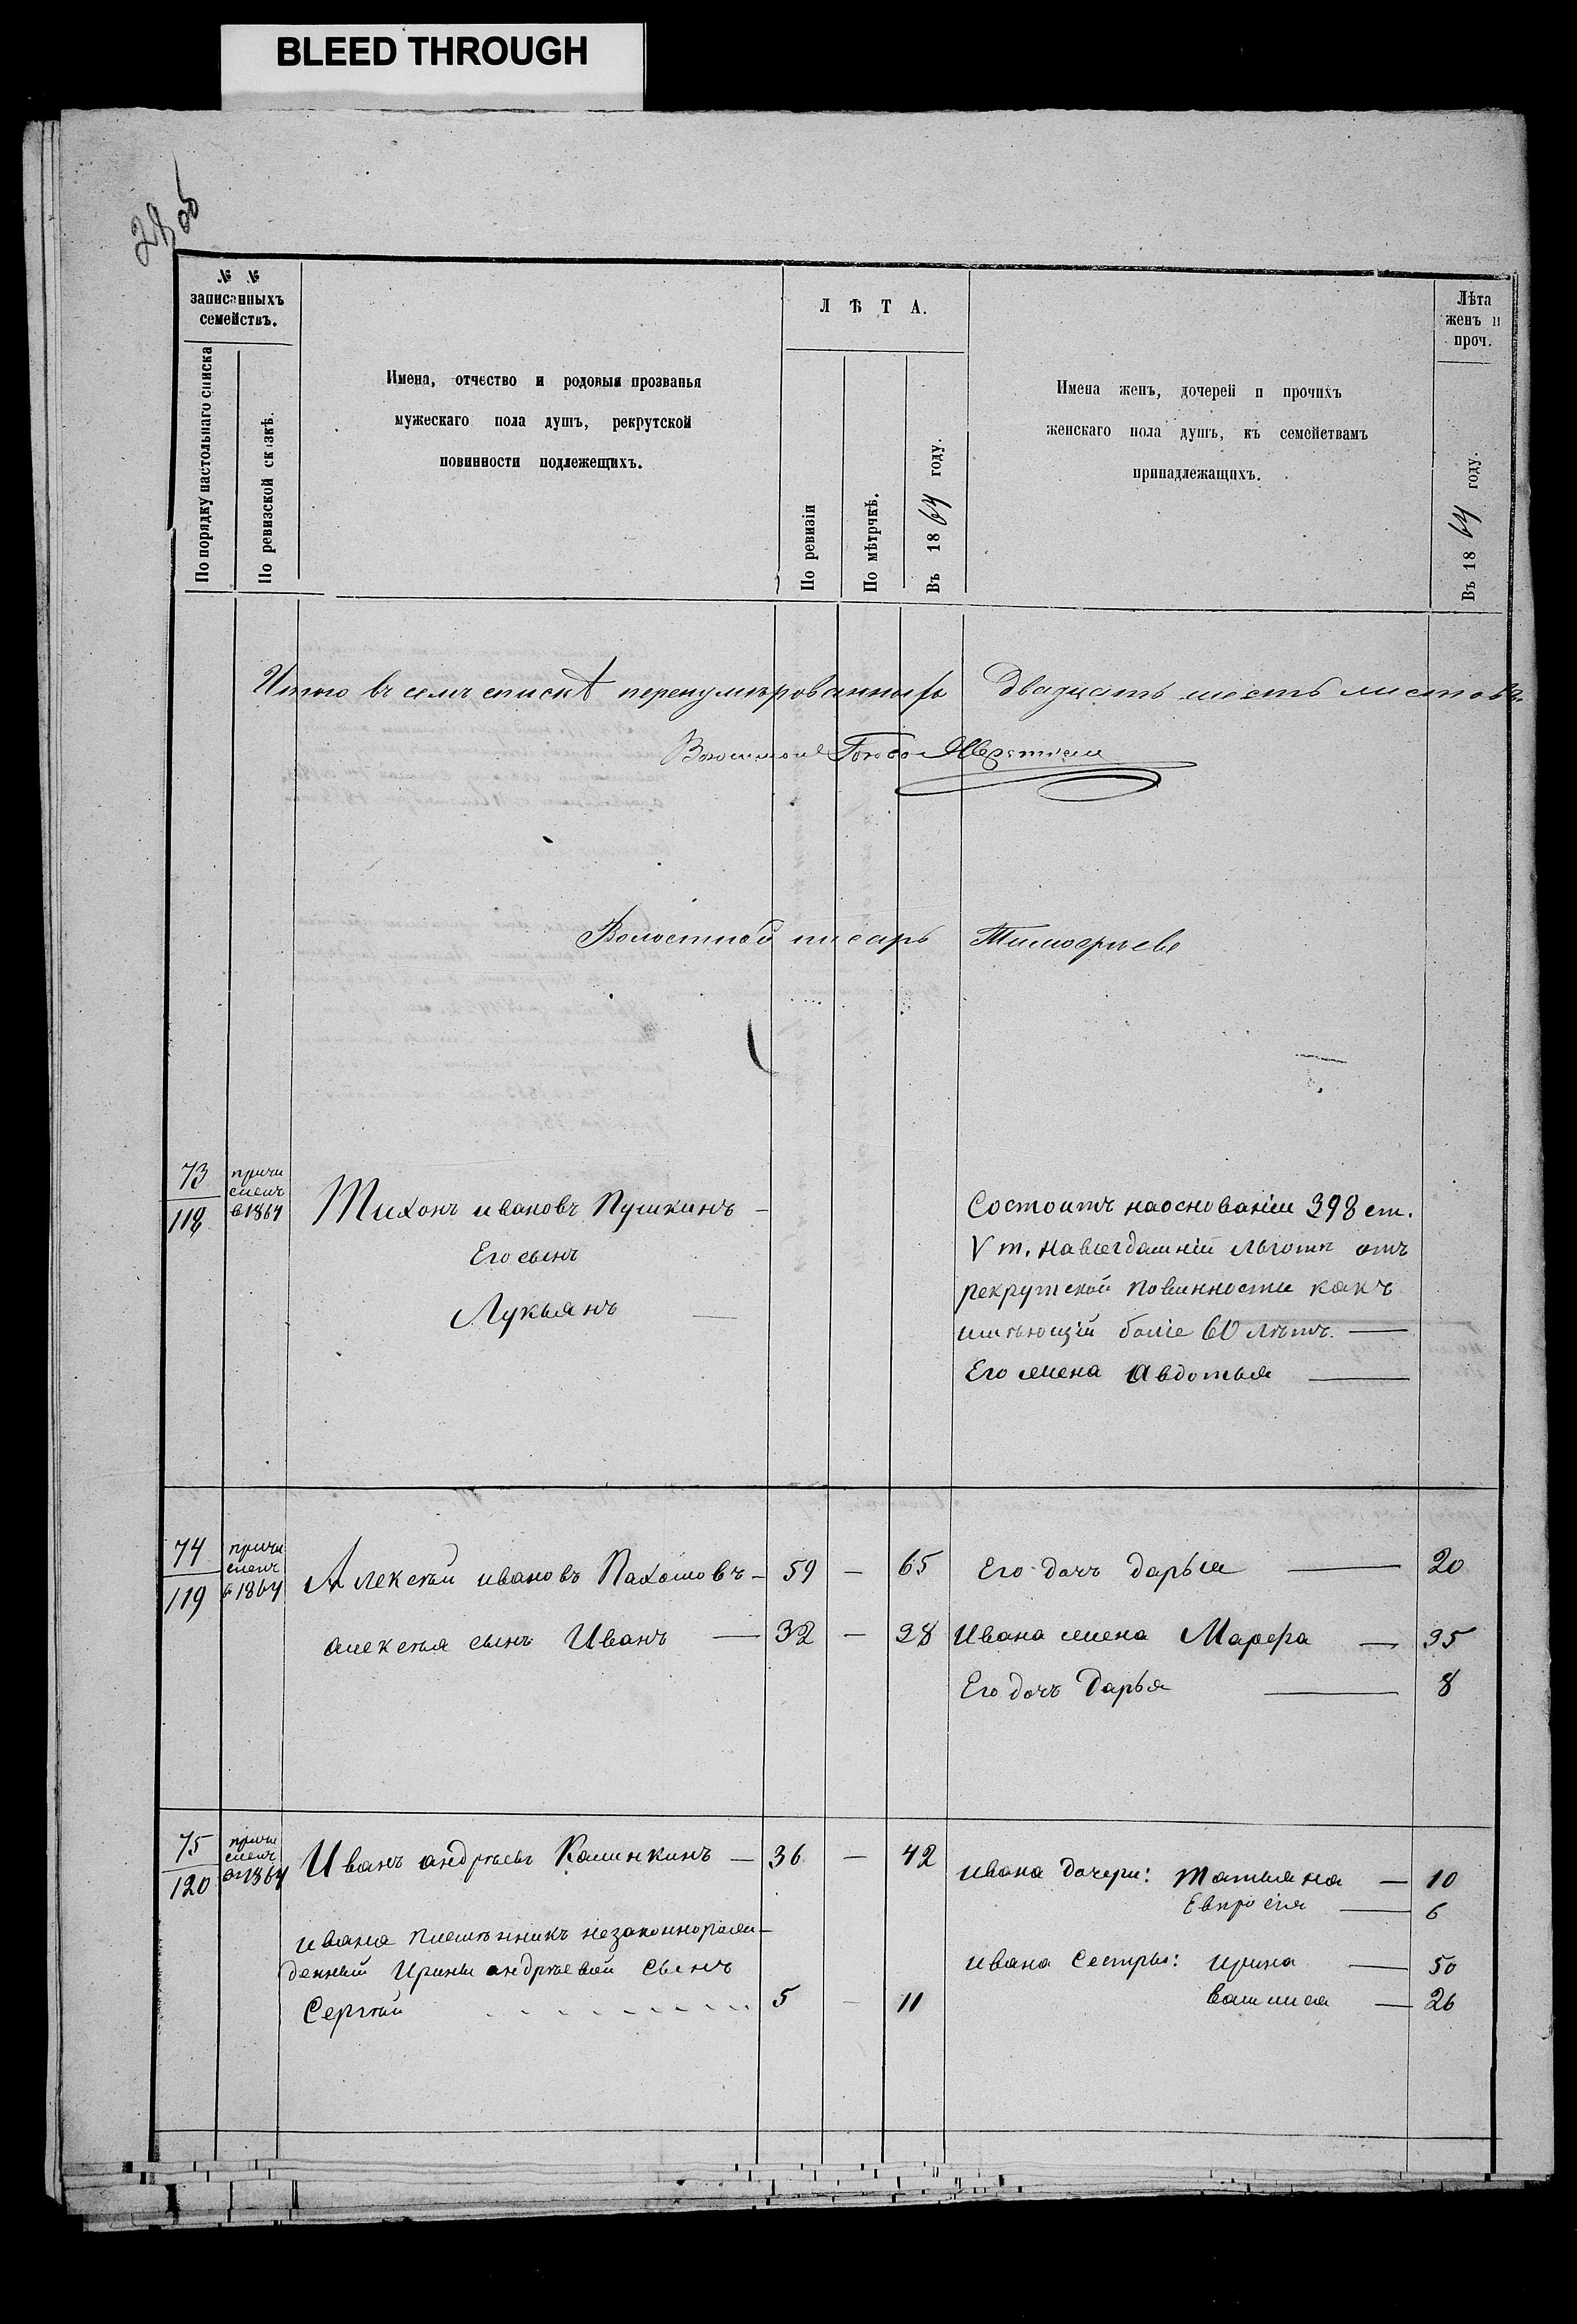 BLEED THROUGH
28 об
№ №
записанныхъ
семействъ.
По порядку настольнаго списка
По ревизской сказкѣ.
Имена, отчество и родовыя прозванья
мужескаго пола душъ, рекрутской
повинности подлежещихъ.
ЛѢТА.
По ревизіи
По мѣтрчкѣ.
Въ 1864 году.
Имена женъ, дочерей и прочихъ
женскаго пола душъ, къ семействамъ
принадлежащихъ.
Лѣта
женъ и
проч.
Въ 1864 году.
Итого въ семъ спискѣ перенумѣрованныхъ двадцать шесть листовъ.
Волостной писарь Тимофѣевъ
73 причи
сленъ
118 в 1864
Тихонъ ивановъ Пушкинъ –
Его сынъ
Лукьянъ —
Состоитъ наоснованіи 398 ст.
V т. навсегдашній льготѣ отъ
рекрутской повинности какъ
имѣющій боліе 60 лѣтъ. —
Его жена Авдотья —
74 причи
сленъ
119 в 1864
Алексѣй ивановъ Пахомовъ – 59 — 65 Его дочь дарья — 20
алексѣя сынъ Иванъ — 32 — 38 Ивана жена Марфа — 35
Его дочь Дарья — 8
75 причи
сленъ
120 въ 1864
Иванъ андрѣевъ Калинкинъ — 36 — 42 ивана дочери: татьяна — 10
Евпросія — 6
ивана племѣнникъ незаконнорож-
денный Ирины андрѣевой сынъ
Сергѣй 5 — 11
ивана Сестры: ирина — 50
— 26